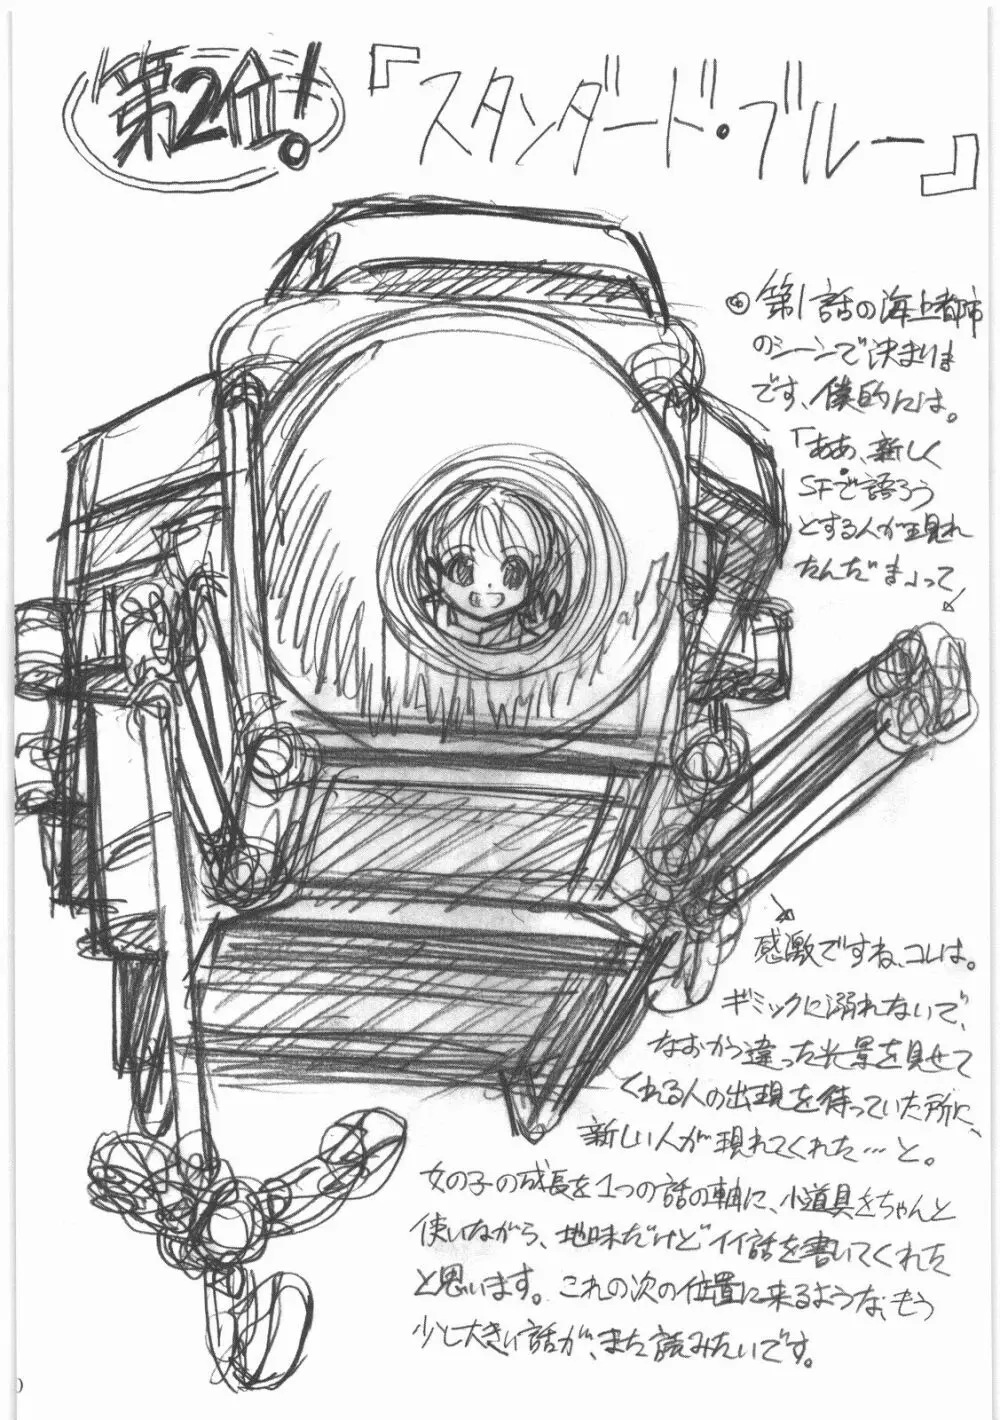 第2位!
『スタンダード・ブルー』
第1話の海上都市
のシーンで決まりま
です、僕的には。
「ああ、新しく
SFで語ろう
とする人が現れ
たんだま」って
感激ですね、コレは。
ギミックに溺れないで、
なおかつ違った光景を見せて
くれる人の出現を待っていた所に、
新しい人が現れてくれた…と。
女の子の成長を1つの話の軸に、小道具をちゃんと
使いながら、地味だけどイイ話を書いてくれた
と思います。これの次の位置に来るような、もう
少し大きい話が、また読みたいです。